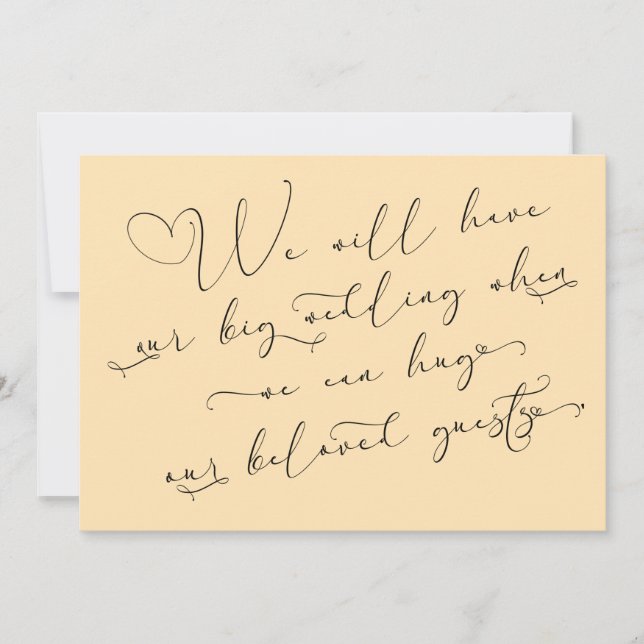 We will have
our big wedding when
we can hug
our beloved guests.